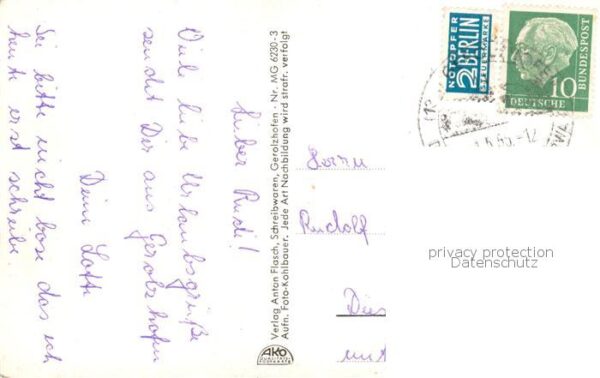 Lieber Rudi!
Viele liebe Urlaubsgrüße
sendet Dir aus Gerolzhofen
Deine Lotte
Sei bitte nicht böse das ich
heute erst schreibe.
Verlag Anton Flasch, Schreibwaren, Gerolzhofen - Nr. MG 6230-3
Aufn. Foto-Kohlbauer. Jede Art Nachbildung wird strafr. verfolgt
AKO
NOTOPFER
2 BERLIN
STEUERMARKE
10
DEUTSCHE
BUNDESPOST
Herrn
Rudolf
privacy protection
Datenschutz